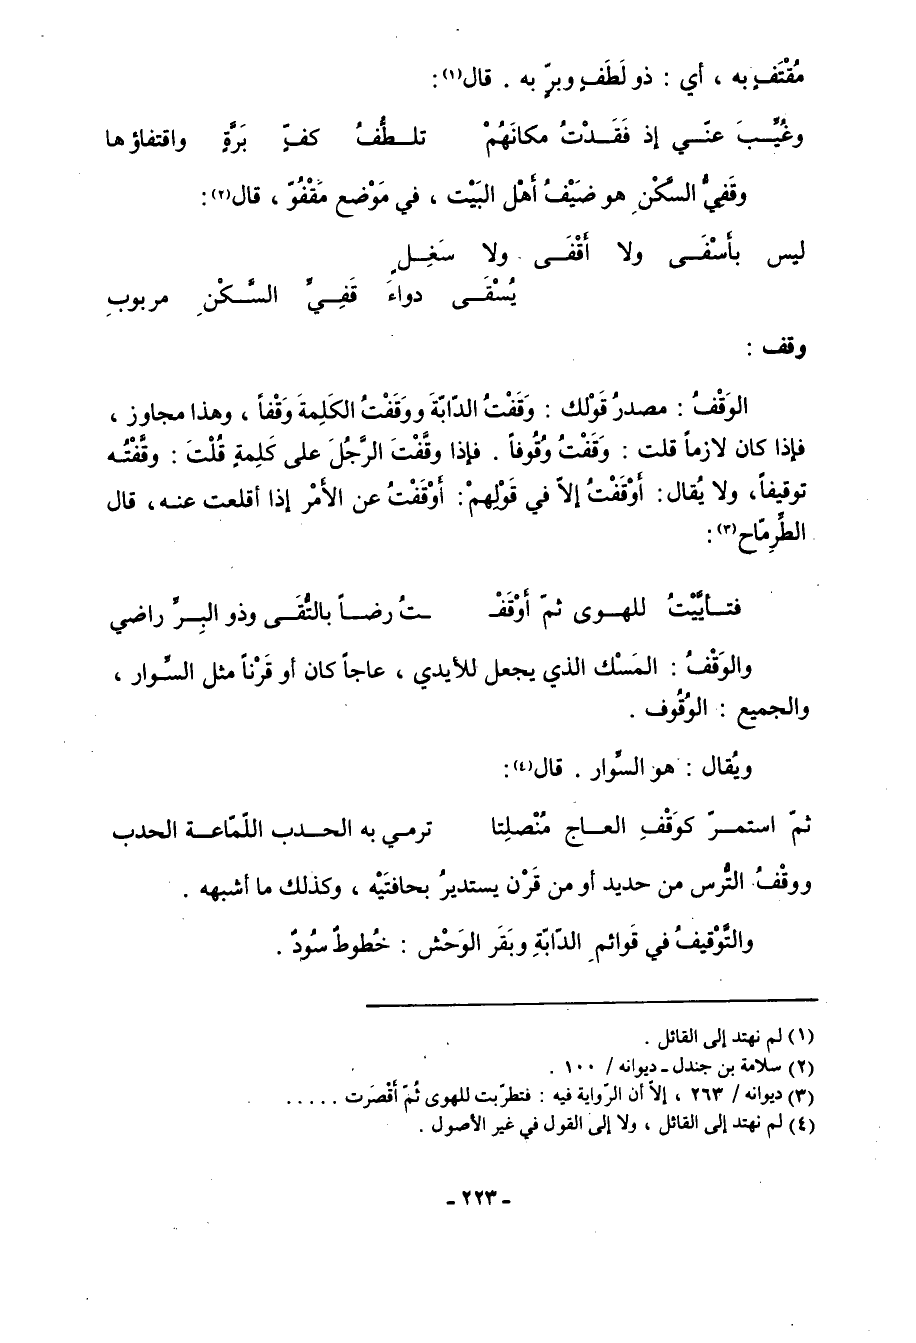 مُقْتَفٍ به ، أي : ذو لَطَفٍ وبرّ به . قال(١):
وغُيِّبَ عنّي إذ فَقَدْتُ مكانَهُمْ تلطُّفُ كفٍّ بَرَّةٍ واقتفاؤها
وقَفِيُّ السَّكْنِ هو ضيَفُ أهْل البَيْت ، في مَوْضع مَقْفُوّ ، قال(٢):
ليس بأسْفَى ولا أقْفَى ولا سَغِلٍ
يُسْقَى دواءَ قَفِيِّ السَّكْنِ مربوبِ
وقف :
الوَقْفُ : مصدرُ قَوْلك : وَقَفْتُ الدّابّةَ ووَقَفْتُ الكَلِمةَ وَقْفاً ، وهذا مجاوز ،
فإذا كان لازماً قلت : وَقَفْتُ وُقُوفاً . فإذا وقَّفْتَ الرَّجُلَ على كَلِمةٍ قُلْتَ : وقَّفْتُه
توقيفاً، ولا يُقال: أوْقَفْتُ إلاّ في قَوْلِهِمْ: أوْقَفْتُ عن الأمْر إذا أقلعت عنه، قال
الطِّرِمّاح(٣):
فتأيَّيْتُ للهوى ثمّ أوْقَفْـ ـتُ رضاً بالتُّقَى وذو البِرِّ راضي
والوَقْفُ : المَسْك الذي يجعل للأيدي ، عاجاً كان أو قَرْناً مثل السِّوار ،
والجميع : الوُقُوف .
ويُقال : هو السِّوار . قال(٤):
ثمّ استمرّ كوَقْفِ العاج مُنْصلِتا ترمي به الحدب اللّمّاعة الحدب
ووقْفُ التُّرس من حديد أو من قَرْن يستديرُ بحافتَيْه ، وكذلك ما أشبهه .
والتَّوْقيفُ في قَوائمِ الدّابّةِ وبَقَر الوَحْش : خُطوطٌ سُودٌ .
(١) لم نهتد إلى القائل .
(٢) سلامة بن جندل ـ ديوانه / ١٠٠ .
(٣) ديوانه / ٢٦٣ ، إلاّ أن الرّواية فيه : فتطرّبت للهوى ثُمّ أقْصَرت . . . . .
(٤) لم نهتد إلى القائل ، ولا إلى القول في غير الأصول .
ـ ٢٢٣ ـ